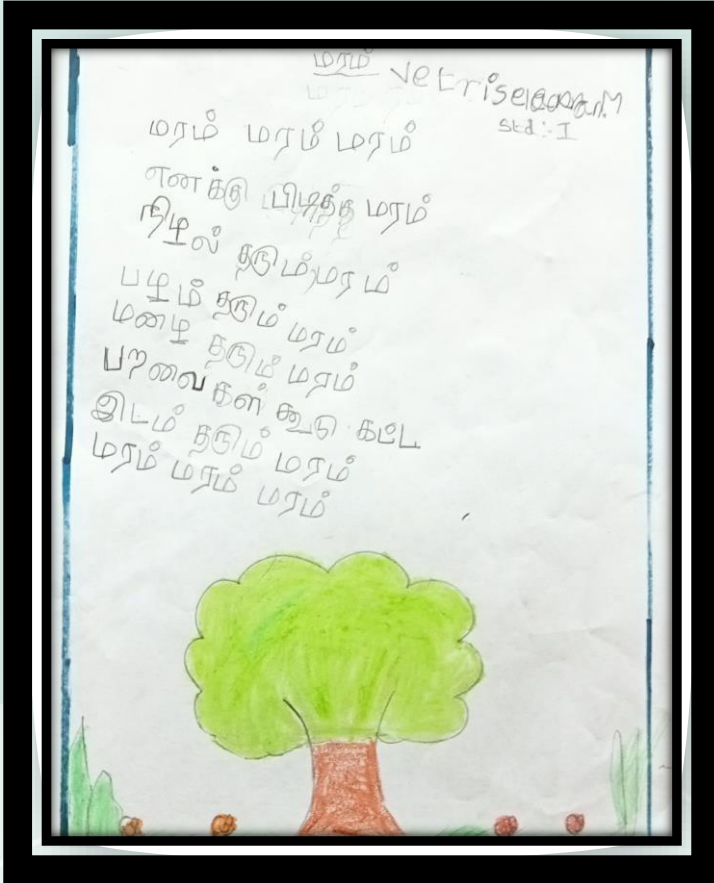 மரம்
std:- I
மரம் மரம் மரம்
எனக்கு பிடித்த மரம்
நிழல் தரும் மரம்
பழம் தரும் மரம்
மழை தரும் மரம்
பறவைகள் கூடு கட்ட
இடம் தரும் மரம்
மரம் மரம் மரம்